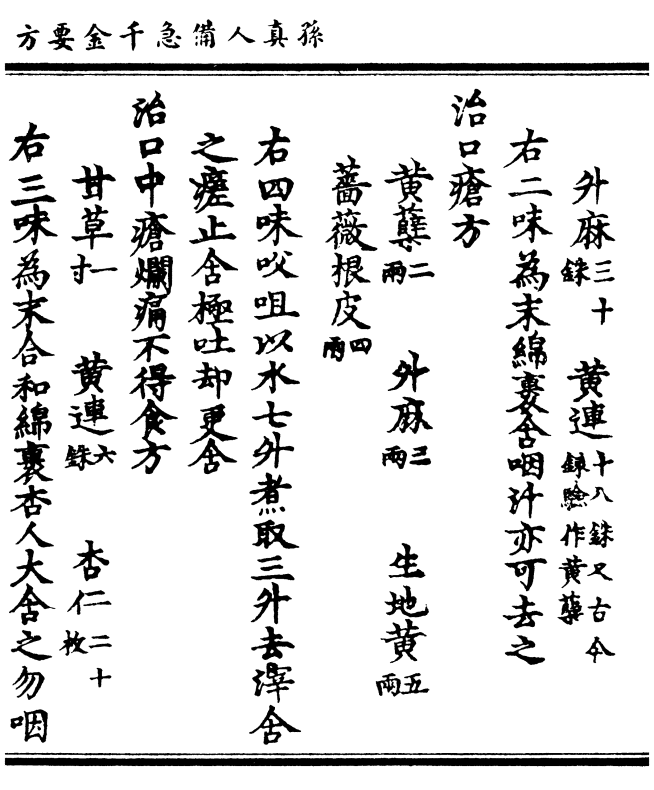 孫真人備急千金要方
外麻三十銖 黃連十八銖又古今録驗作黃蘗
右二味為末綿裹舍咽汁亦可去之
治口瘡方
黃蘗二兩 外麻三兩 生地黃五兩
薔薇根皮四兩
右四味㕮咀以水七外煮取三外去滓舍
之瘥止舍極吐却更舍
治口中瘡爛痛不得食方
甘草一寸 黃連六銖 杏仁二十枚
右三味為末合和綿裹杏人大舍之勿咽